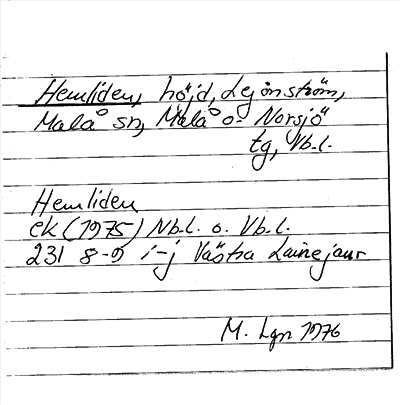 Hemliden, höjd, Lejonström,
Malå sn, Malå o. Norsjö
tg, Vb.l.
Hemliden
ek (1975) Nb.l. o. Vb.l.
231 8-9 i-j Västra Lainejaur
M. Lgn 1976